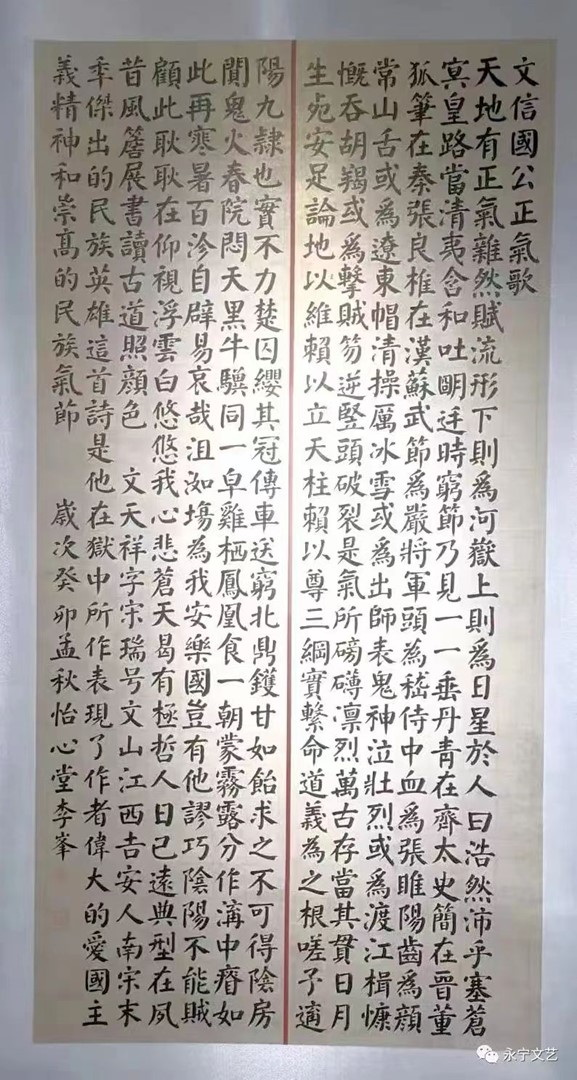 文信國公正氣歌
天地有正氣雜然賦流形下則為河嶽上則為日星於人曰浩然沛乎塞蒼
冥皇路當清夷含和吐明廷時窮節乃見一一垂丹青在齊太史簡在晉董
狐筆在秦張良椎在漢蘇武節為嚴將軍頭為嵇侍中血為張睢陽齒為顏
常山舌或為遼東帽清操厲冰雪或為出師表鬼神泣壯烈或為渡江楫慷
慨吞胡羯或為擊賊笏逆豎頭破裂是氣所磅礴凛烈萬古存當其貫日月
生死安足論地以維賴以立天柱賴以尊三綱實繫命道義為之根嗟予遘
陽九隸也實不力楚囚纓其冠傳車送窮北鼎鑊甘如飴求之不可得陰房
閴鬼火春院悶天黑牛驥同一皁雞栖鳳凰食一朝蒙霧露分作溝中瘠如
此再寒暑百沴自辟易哀哉沮洳場為我安樂國豈有他謬巧陰陽不能賊
顧此耿耿在仰視浮雲白悠悠我心悲蒼天曷有極哲人日已遠典型在夙
昔風簷展書讀古道照顏色 文天祥字宋瑞号文山江西吉安人南宋末
季傑出的民族英雄這首詩是他在獄中所作表現了作者偉大的愛國主
義精神和崇高的民族氣節 歲次癸卯孟秋怡心堂李峯
永宁文艺